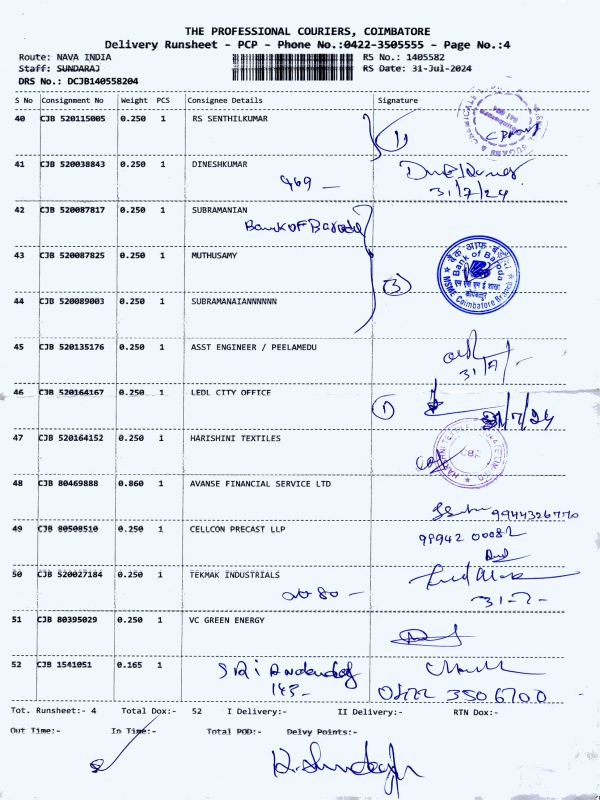 THE PROFESSIONAL COURIERS, COIMBATORE
Delivery Runsheet - PCP - Phone No.:0422-3505555 - Page No.:4
Route: NAVA INDIA RS No.: 1405582
Staff: SUNDARAJ RS Date: 31-Jul-2024
DRS No.: DCJB140558204
S No Consignment No Weight PCS Consignee Details Signature
40 CJB 520115005 0.250 1 RS SENTHILKUMAR
41 CJB 520038843 0.250 1 DINESHKUMAR
969 —
31/7/24
42 CJB 520087817 0.250 1 SUBRAMANIAN
Bank of Baroda
43 CJB 520087825 0.250 1 MUTHUSAMY
बैंक ऑफ़ बड़ौदा
Bank of Baroda
MSME Coimbatore Branch
3
44 CJB 520089003 0.250 1 SUBRAMANAIANNNNNN
45 CJB 520135176 0.250 1 ASST ENGINEER / PEELAMEDU
31/7/-
46 CJB 520164167 0.250 1 LEDL CITY OFFICE
1
31/7/24
47 CJB 520164152 0.250 1 HARISHINI TEXTILES
48 CJB 80469888 0.860 1 AVANSE FINANCIAL SERVICE LTD
9944326770
49 CJB 80508510 0.250 1 CELLCON PRECAST LLP
99942 00082
50 CJB 520027184 0.250 1 TEKMAK INDUSTRIALS
80 —
31-7-
51 CJB 80395029 0.250 1 VC GREEN ENERGY
52 CJB 1541051 0.165 1
0422 350 6700
Tot. Runsheet:- 4 Total Dox:- 52 I Delivery:- II Delivery:- RTN Dox:-
Out Time:- In Time:- Total POD:- Delvy Points:-